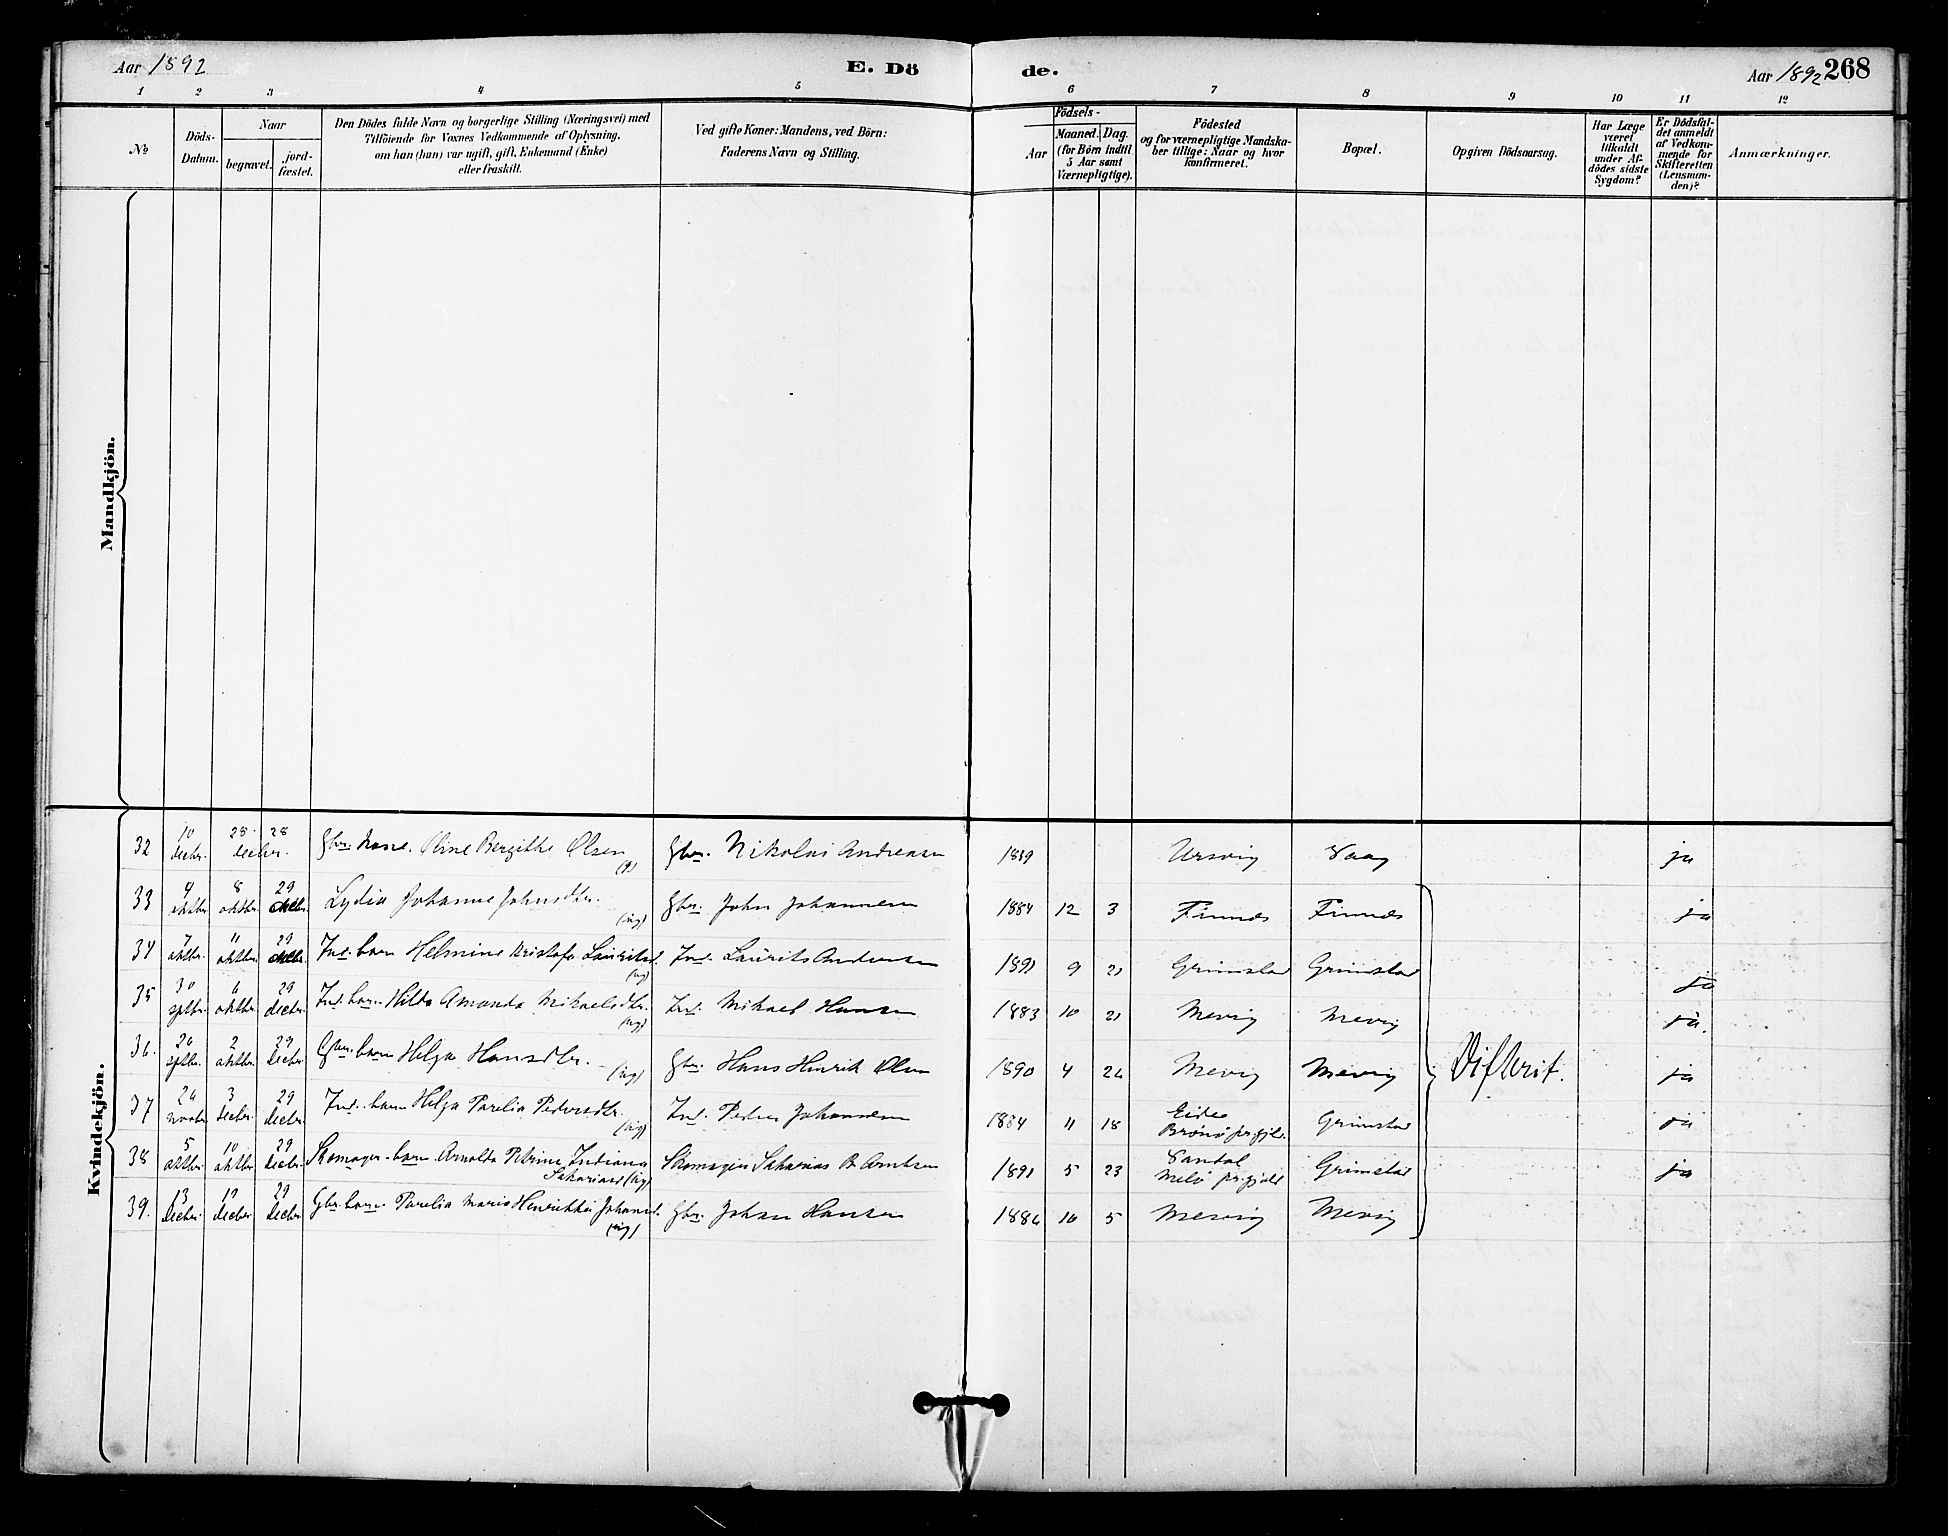 Aar 1892
E. Dö
de.
Aar 1892 268
1 2 3 4 5 6 7 8 9 10 11 12
No
Döds-
Datum.
Naar
begravet.
jord-
fæstet.
Den Dödes fulde Navn og borgerlige Stilling (Næringsvei) med
Tilföiende for Voxnes Vedkommende af Oplysning,
om han (hun) var ugift, gift, Enkemand (Enke)
eller fraskilt.
Ved gifte Koner: Mandens, ved Börn:
Faderens Navn og Stilling.
Födsels-
Aar
Maaned. Dag.
(for Börn indtil
5 Aar samt
Værnepligtige).
Födested
og for værnepligtige Mandska-
ber tillige: Naar og hvor
konfirmeret.
Bopæl.
Opgiven Dödsaarsag.
Har Læge
været
tilkaldt
under Af-
dödes sidste
Sygdom?
Er Dödsfal-
det anmeldt
af Vedkom-
mende for
Skifteretten
(Lensman-
den)?
Anmærkninger.
Mandkjön.
Kvindekjön.
32 10 decbr. 28 28 decbr. Gbr. kone. Oline Bergitthe Olsen (g) Gbr. Nikolai Andreasen 1839 Ursvig Vaag ja
33 4 oktbr 8 oktbr. 29 Lydia Johanne Johnsdtr. (ug) Gbr. John Johannesen 1884 12 3 Finnes Finnes ja
34 7 oktbr. 11 oktbr. 29 Ind. barn Helmine Kristofa Lauritsd. (ug) Ind. Laurits Andersen 1891 9 21 Grimstad Grimstad ja
35 30 sptbr. 6 oktbr. 29 decbr. Ind. barn Hilda Amanda Mikaelsdtr. (ug) Ind. Mikael Hansen 1883 10 21 Mevig Mevig ja.
36. 26 sptbr. 2 oktbr. 29 decbr. Gbr. barn Helga Hansdtr. (ug) Gbr. Hans Henrik Olsen 1890 4 26 Mevig Mevig Difterit. ja
37 26 novbr. 3 decbr. 29 decbr. Ind. barn Helga Parelia Pedersdtr. (ug) Ind. Peder Johannesen 1884 11 18 Eide Brönö prgjld. Grimstad ja
38 5 oktbr. 10 oktbr. 29 decbr. Skomager-barn Arnolda Petrine Indiana Sakariasd (ug) Skomager Sakarias B. Arntsen 1891 5 23 Sandal Melö prgjeld Grimstad ja
39. 13 decbr. 19 decbr. 29 decbr Gbr. barn. Parelia Maria Henrikka Johansd. (ug) Gbr. Johan Hansen 1886 10 5 Mevig Mevig